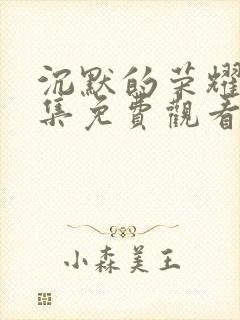 沉默的荣耀
集免費觀看
小森美王